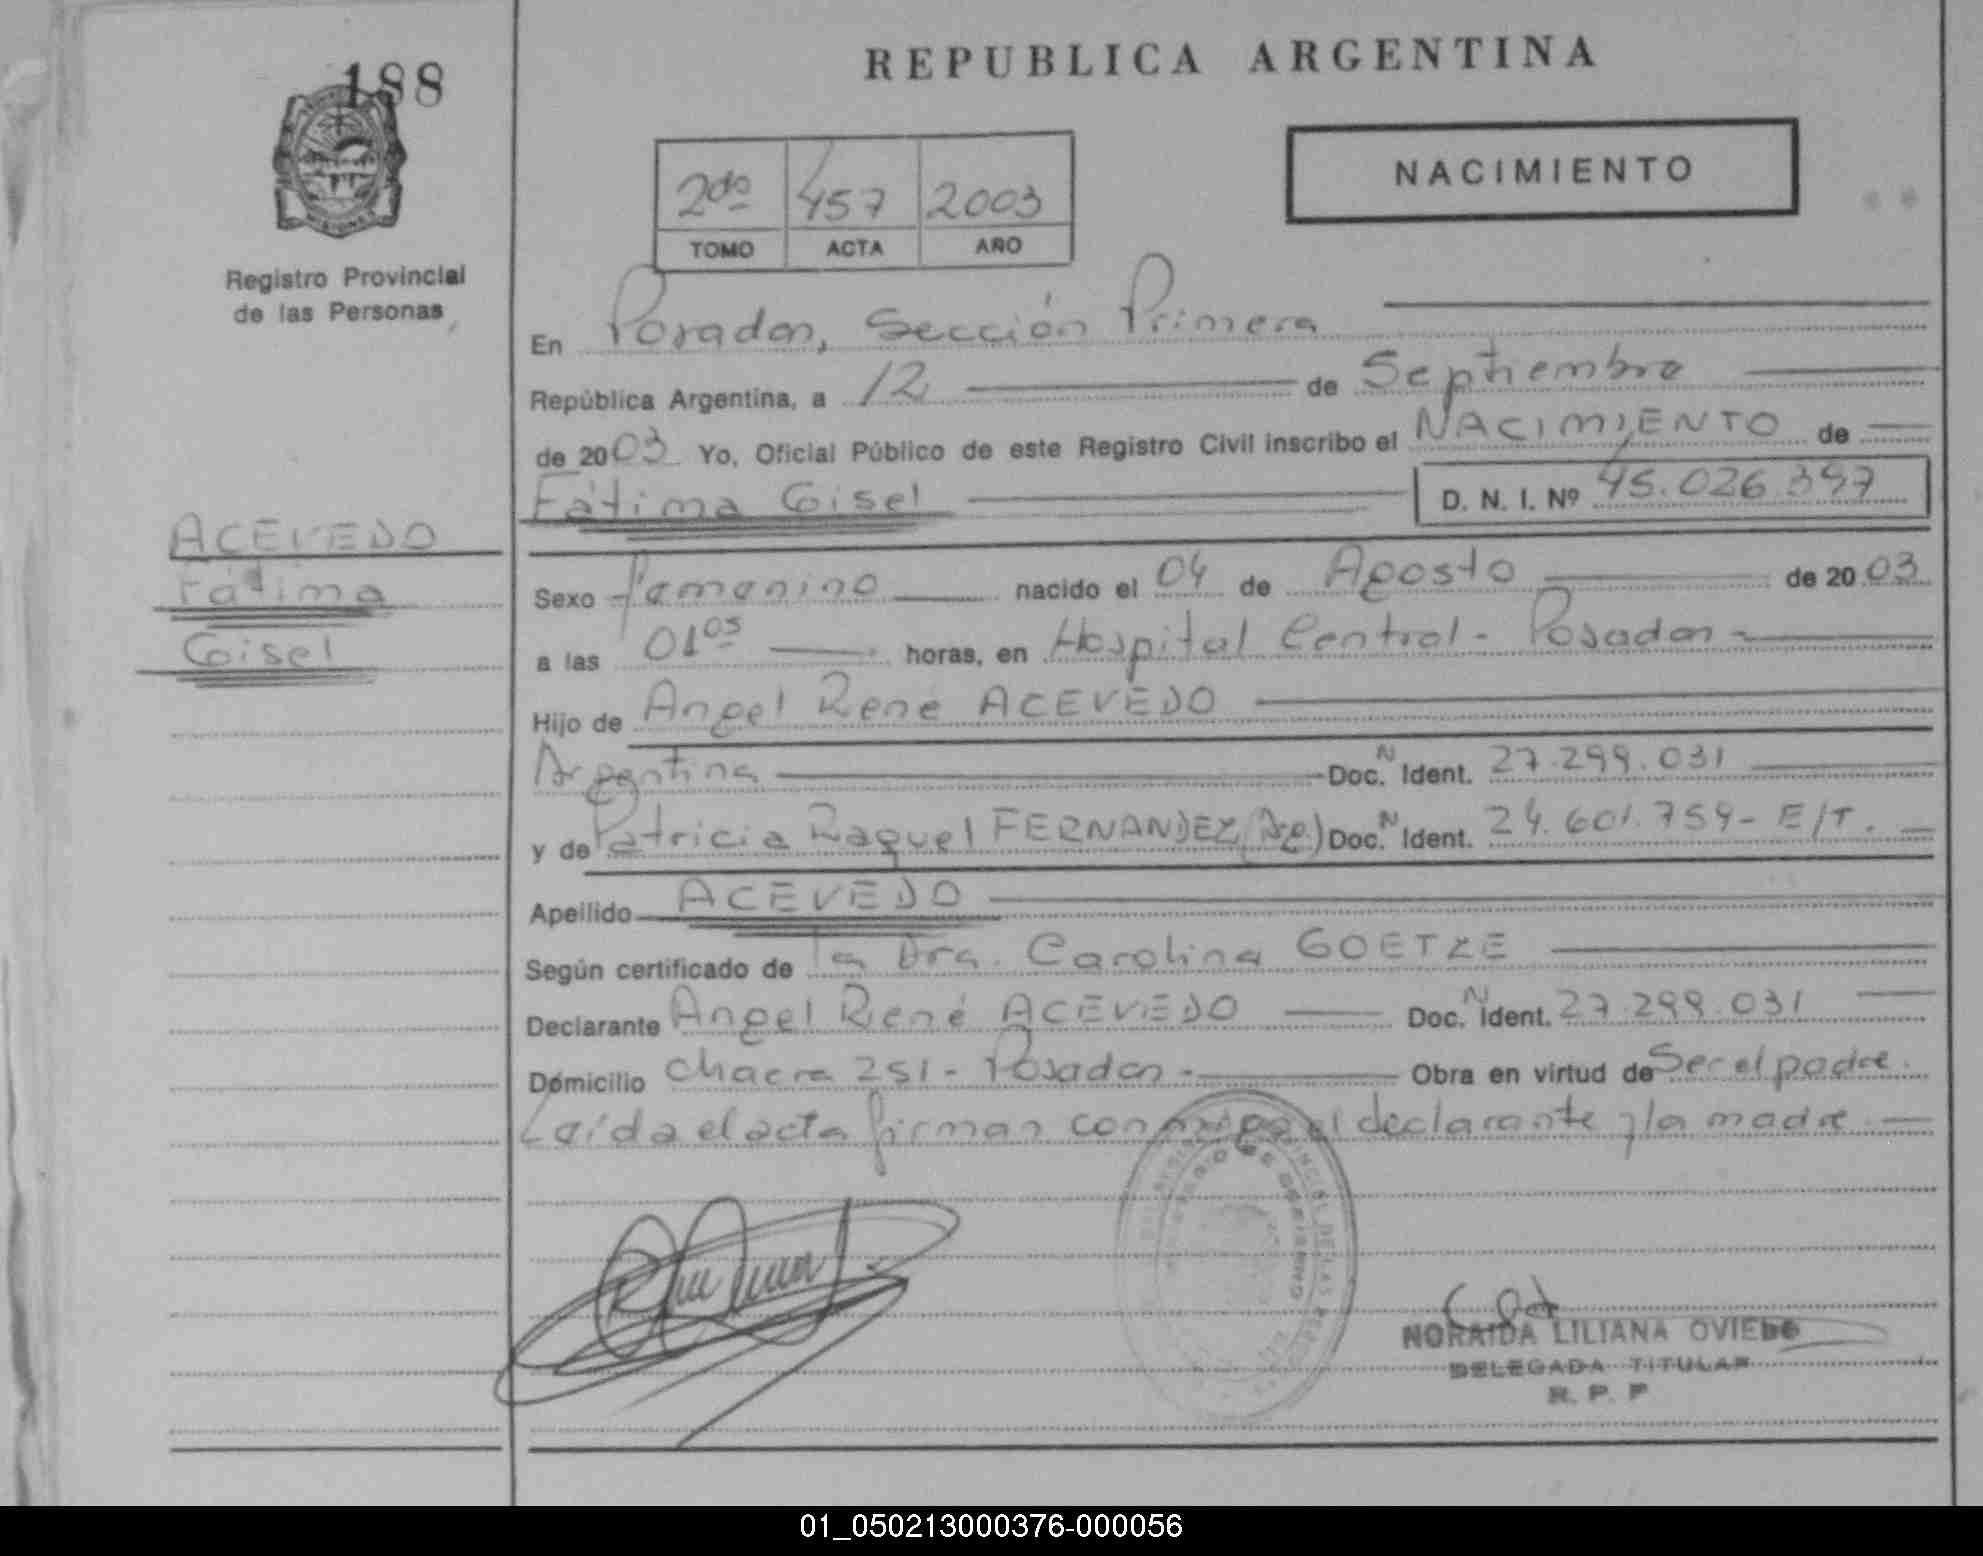 188
REPUBLICA ARGENTINA
NACIMIENTO
2do 457 2003
TOMO ACTA AÑO
MISIONES
Registro Provincial
de las Personas
En Posadas, Sección Primera
República Argentina, a 12 de Septiembre
de 2003 Yo, Oficial Público de este Registro Civil inscribo el NACIMIENTO de
Fátima Gisel D. N. I. Nº 45.026.397
ACEVEDO
Fátima
Gisel
Sexo Femenino nacido el 04 de Agosto de 2003
a las 01 05 horas, en Hospital Central - Posadas -
Hijo de Angel René ACEVEDO
Argentina Doc. N Ident. 27.299.031
y de Patricia Raquel FERNANDEZ (Arg.) Doc. N Ident. 24.601.759 - E/T.
Apellido ACEVEDO
Según certificado de la Dra. Carolina GOETZE
Declarante Angel René ACEVEDO Doc. N Ident. 27.299.031
Domicilio Chacra 251 - Posadas - Obra en virtud de Ser el padre.
Leída el acta firman conmigo el declarante y la madre.
NORAIDA LILIANA OVIEDO
DELEGADA TITULAR
R. P. P
01_050213000376-000056